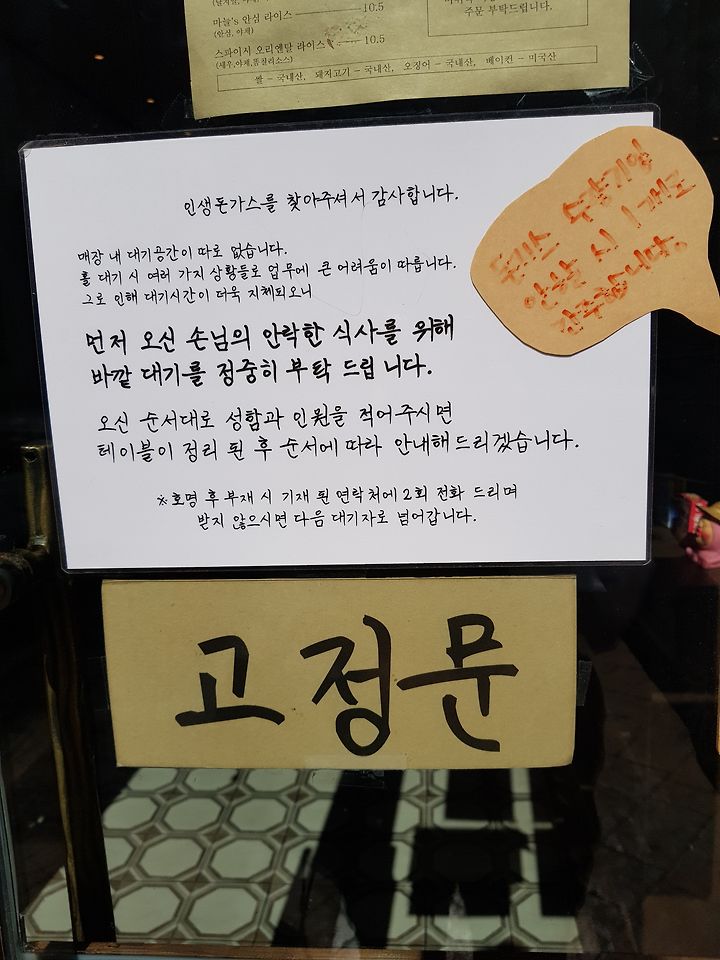 마늘's 안심 라이스 10.5
(안심, 야채)
스파이시 오리엔탈 라이스 10.5
(새우,야채,통칠리소스)
주문 부탁드립니다.
쌀 - 국내산, 돼지고기 - 국내산, 오징어 - 국내산, 베이컨 - 미국산
인생돈가스를 찾아주셔서 감사합니다.
매장 내 대기공간이 따로 없습니다.
홀 대기 시 여러 가지 상황들로 업무에 큰 어려움이 따릅니다.
그로 인해 대기시간이 더욱 지체되오니
먼저 오신 손님의 안락한 식사를 위해
바깥 대기를 정중히 부탁 드립니다.
오신 순서대로 성함과 인원을 적어주시면
테이블이 정리 된 후 순서에 따라 안내해드리겠습니다.
※호명 후 부재 시 기재 된 연락처에 2회 전화 드리며
받지 않으시면 다음 대기자로 넘어갑니다.
돈까스 수량기입
안하실 시 1개로
간주합니다.
고정문